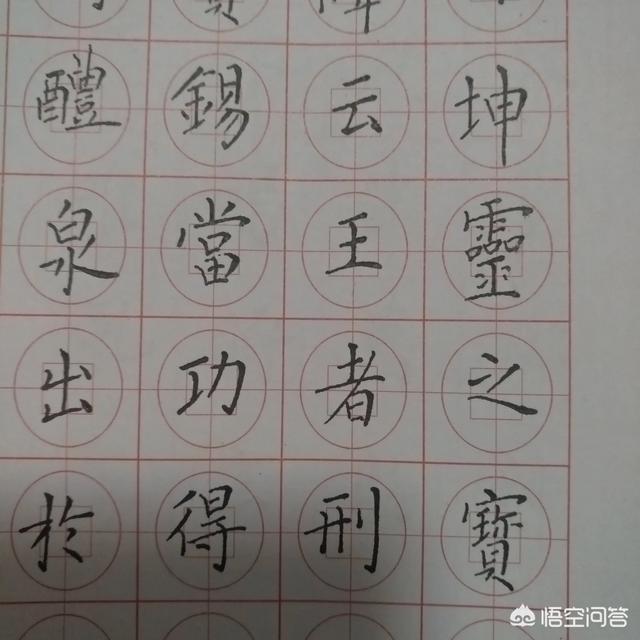 坤靈之寶
云王者刑
錫當功得
醴泉出於
悟空问答